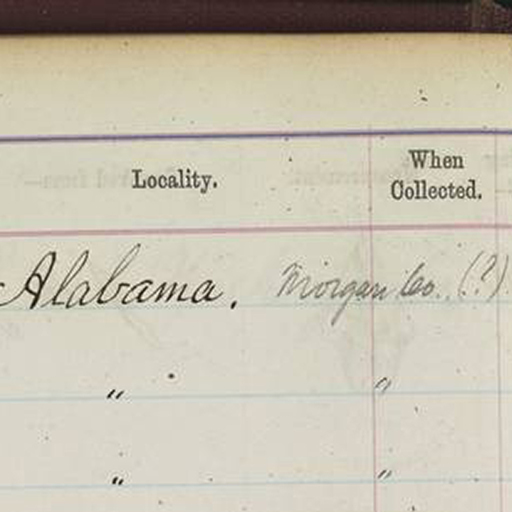 Locality. When Collected.
Alabama. Morgan Co. (?)
" "
" "